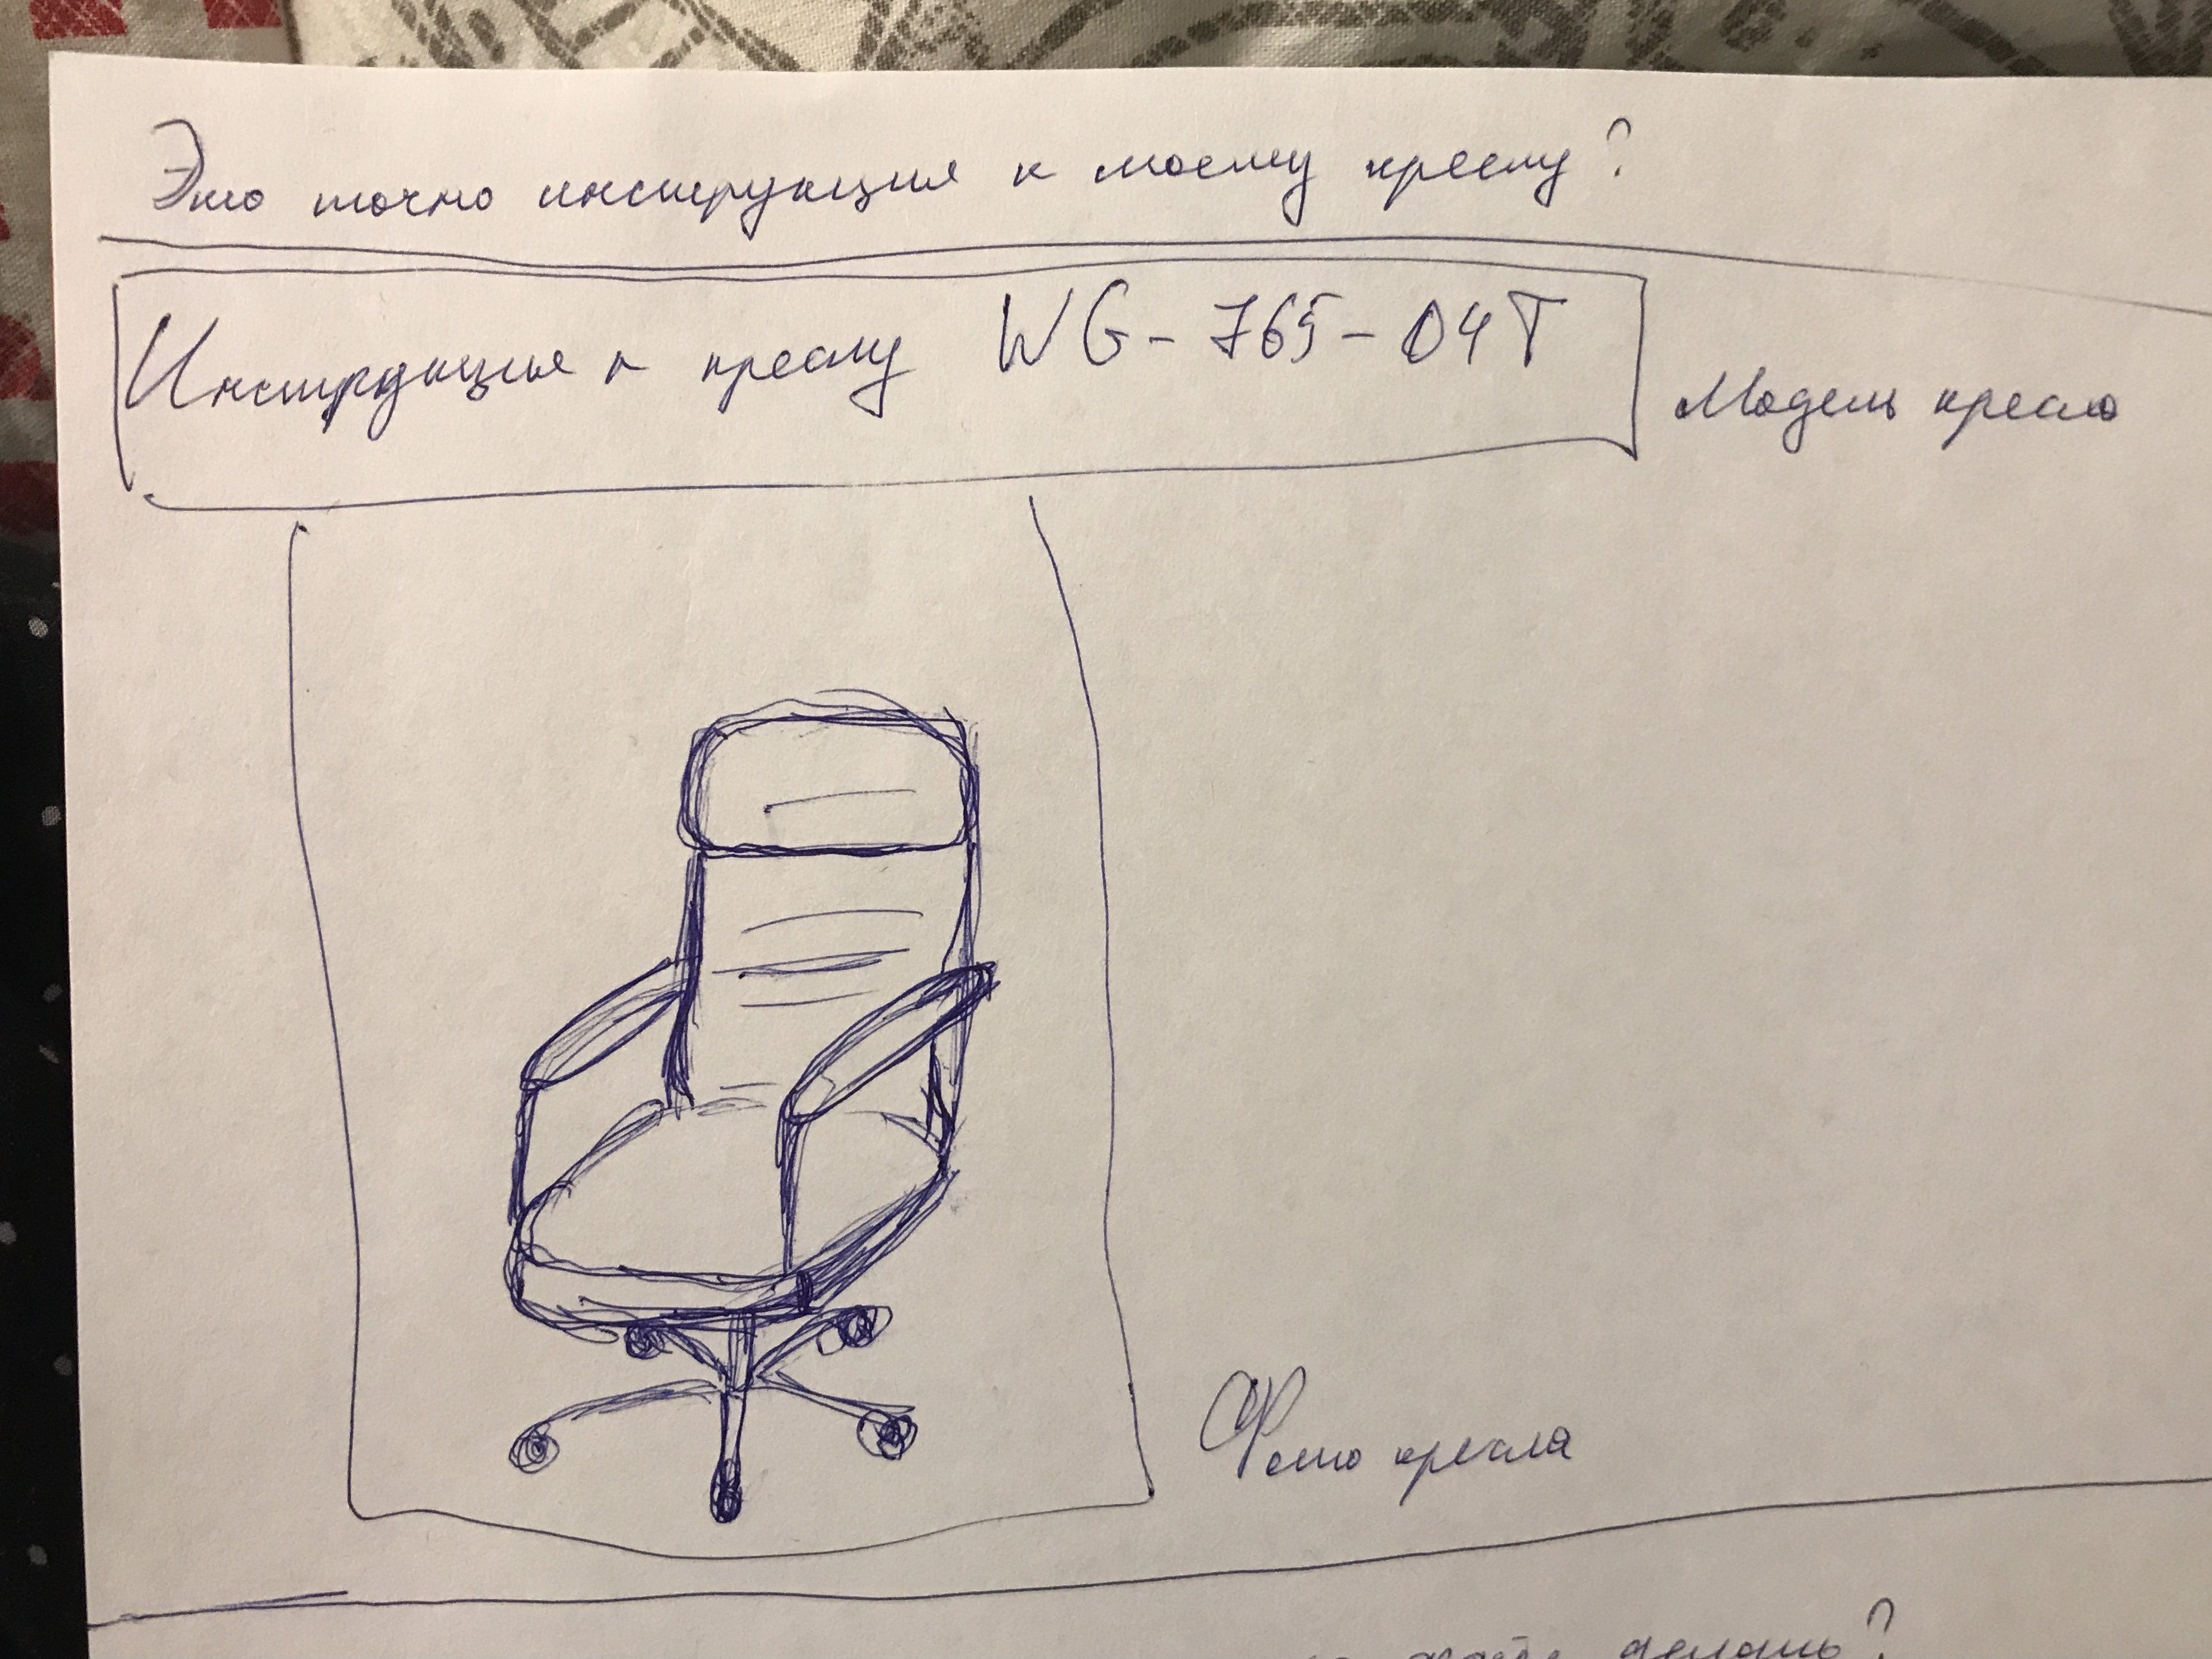 Это точно инструкция к моему креслу?
Инструкция к креслу WG-765-04T
Модель кресла
Фото кресла
делать?